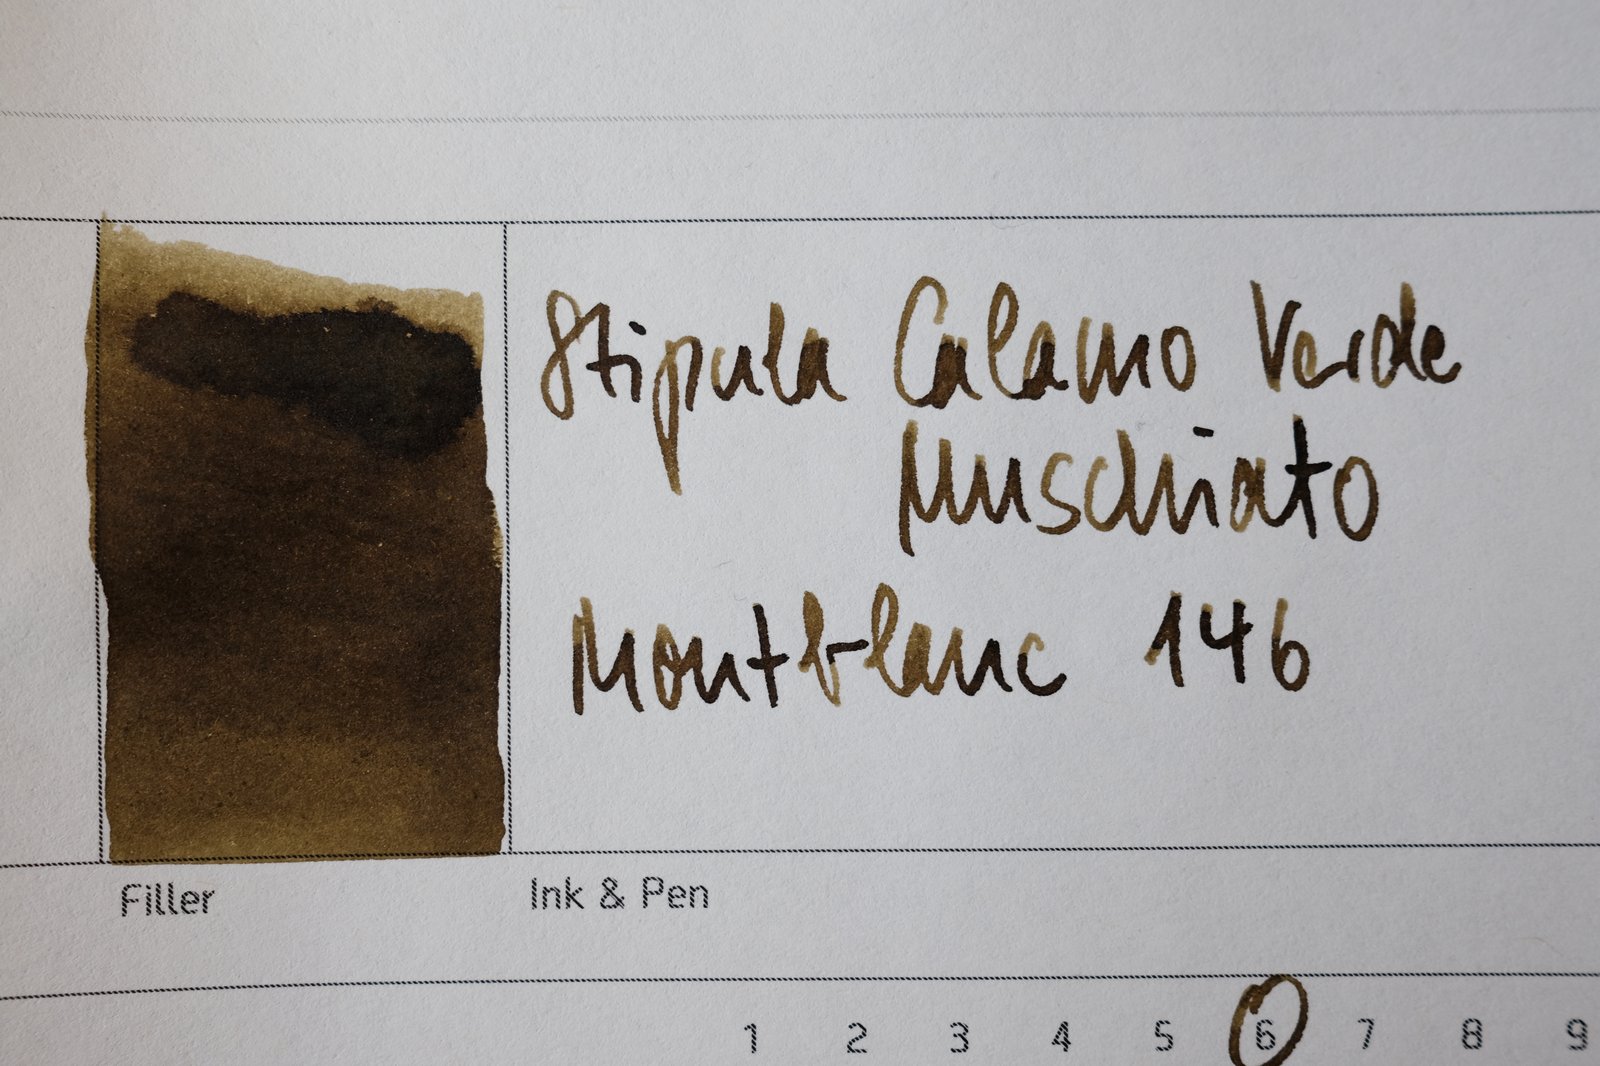 Stipula Calamo Verde
Muschiato
Montblanc 146
Filler
Ink & Pen
1 2 3 4 5 6 7 8 9